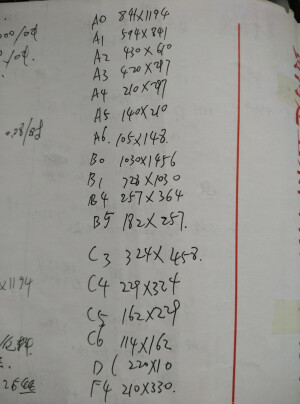 A0 841X1194
A1 594X841
A2 430X610
A3 420X297
A4 210X297
A5 140X210
A6. 105X148.
B0 1030X1456
B1 728X1030
B4 257X364
B5 182X257.
C3 324X458.
C4 229X324
C5 162X229
C6 114X162
D( 220X10
F4 210X330.
X1194